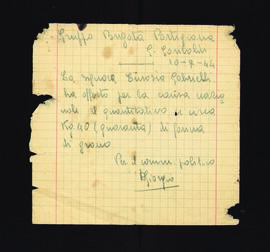 Gruppo Brigata Partigiana
G. Garibaldi
10-9-44
La signora Gabriella
ha offerto per la causa nazio
nale il quantitativo di circa
Kg. 40 (quaranta) di farina
di grano
Per il comm. politico
Giorgio